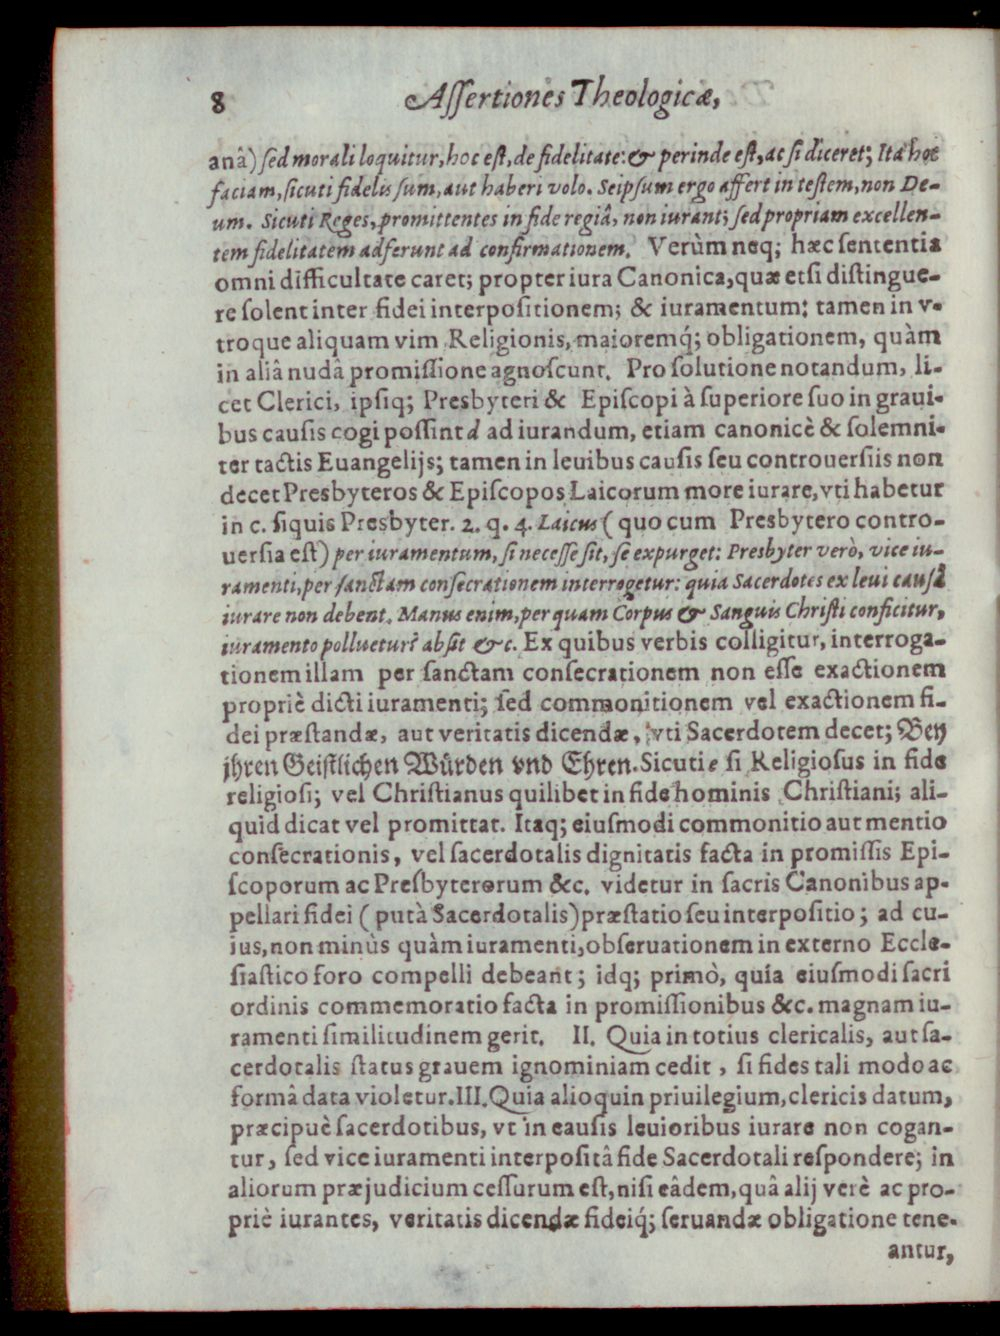 8 Aſſertiones Theologicæ,
anâ) ſed morali loquitur, hoc eſt, de fidelitate: & perinde eſt, ac ſi diceret; Ita hoc
faciam, ſicuti fidelis ſum, aut haberi volo. Seipſum ergo affert in teſtem, non De-
um. Sicuti Reges, promittentes in fide regiâ, non iurant; ſed propriam excellen-
tem fidelitatem adferunt ad confirmationem. Verùm neq; hæc ſententia
omni difficultate caret; propter iura Canonica, quæ etſi diſtingue-
re ſolent inter fidei interpoſitionem; & iuramentum: tamen in v-
troque aliquam vim Religionis, maioremq́; obligationem, quàm
in aliâ nudâ promiſſione agnoſcunt. Pro ſolutione notandum, li-
cet Clerici, ipſiq; Presbyteri & Epiſcopi à ſuperiore ſuo in graui-
bus cauſis cogi poſſint d ad iurandum, etiam canonicè & ſolemni-
ter tactis Euangelijs; tamen in leuibus cauſis ſeu controuerſiis non
decet Presbyteros & Epiſcopos Laicorum more iurare, vti habetur
in c. ſiquis Presbyter. 2. q. 4. Laicus (quo cum Presbytero contro-
uerſia eſt) per iuramentum, ſi neceſſe ſit, ſe expurget: Presbyter verò, vice iu-
ramenti, per ſanctam conſecrationem interrogetur: quia Sacerdotes ex leui cauſâ
iurare non debent. Manus enim, per quam Corpus & Sanguis Chriſti conficitur,
iuramento polluetur? abſit &c. Ex quibus verbis colligitur, interroga-
tionem illam per ſanctam conſecrationem non eſſe exactionem
propriè dicti iuramenti; ſed commonitionem vel exactionem fi-
dei præſtandæ, aut veritatis dicendæ, vti Sacerdotem decet; Bey
jhren Geiſtlichen Würden vnd Ehren. Sicuti e ſi Religioſus in fide
religioſi; vel Chriſtianus quilibet in fide hominis Chriſtiani; ali-
quid dicat vel promittat. Itaq; eiuſmodi commonitio aut mentio
conſecrationis, vel ſacerdotalis dignitatis facta in promiſſis Epi-
ſcoporum ac Preſbyterorum &c. videtur in ſacris Canonibus ap-
pellari fidei (putà Sacerdotalis) præſtatio ſeu interpoſitio; ad cu-
ius, non minùs quàm iuramenti, obſeruationem in externo Eccle-
ſiaſtico foro compelli debeant; idq; primò, quia eiuſmodi ſacri
ordinis commemoratio facta in promiſſionibus &c. magnam iu-
ramenti ſimilitudinem gerit. II. Quia in totius clericalis, aut ſa-
cerdotalis ſtatus grauem ignominiam cedit, ſi fides tali modo ac
formâ data violetur. III. Quia alioquin priuilegium, clericis datum,
præcipuè ſacerdotibus, vt in cauſis leuioribus iurare non cogan-
tur, ſed vice iuramenti interpoſitâ fide Sacerdotali reſpondere; in
aliorum præjudicium ceſſurum eſt, niſi eâdem, quâ alij verè ac pro-
priè iurantes, veritatis dicendæ fideiq́; ſeruandæ obligatione tene-
antur,